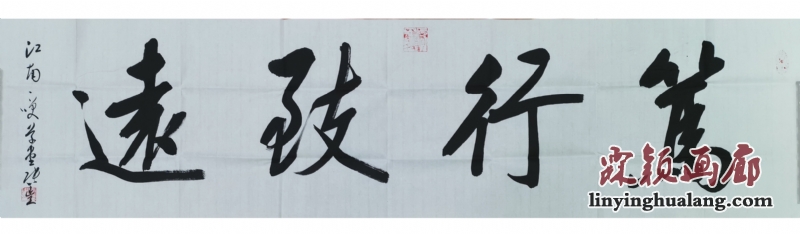 篤行致遠
江南
霖颖画廊
linyinghualang.com